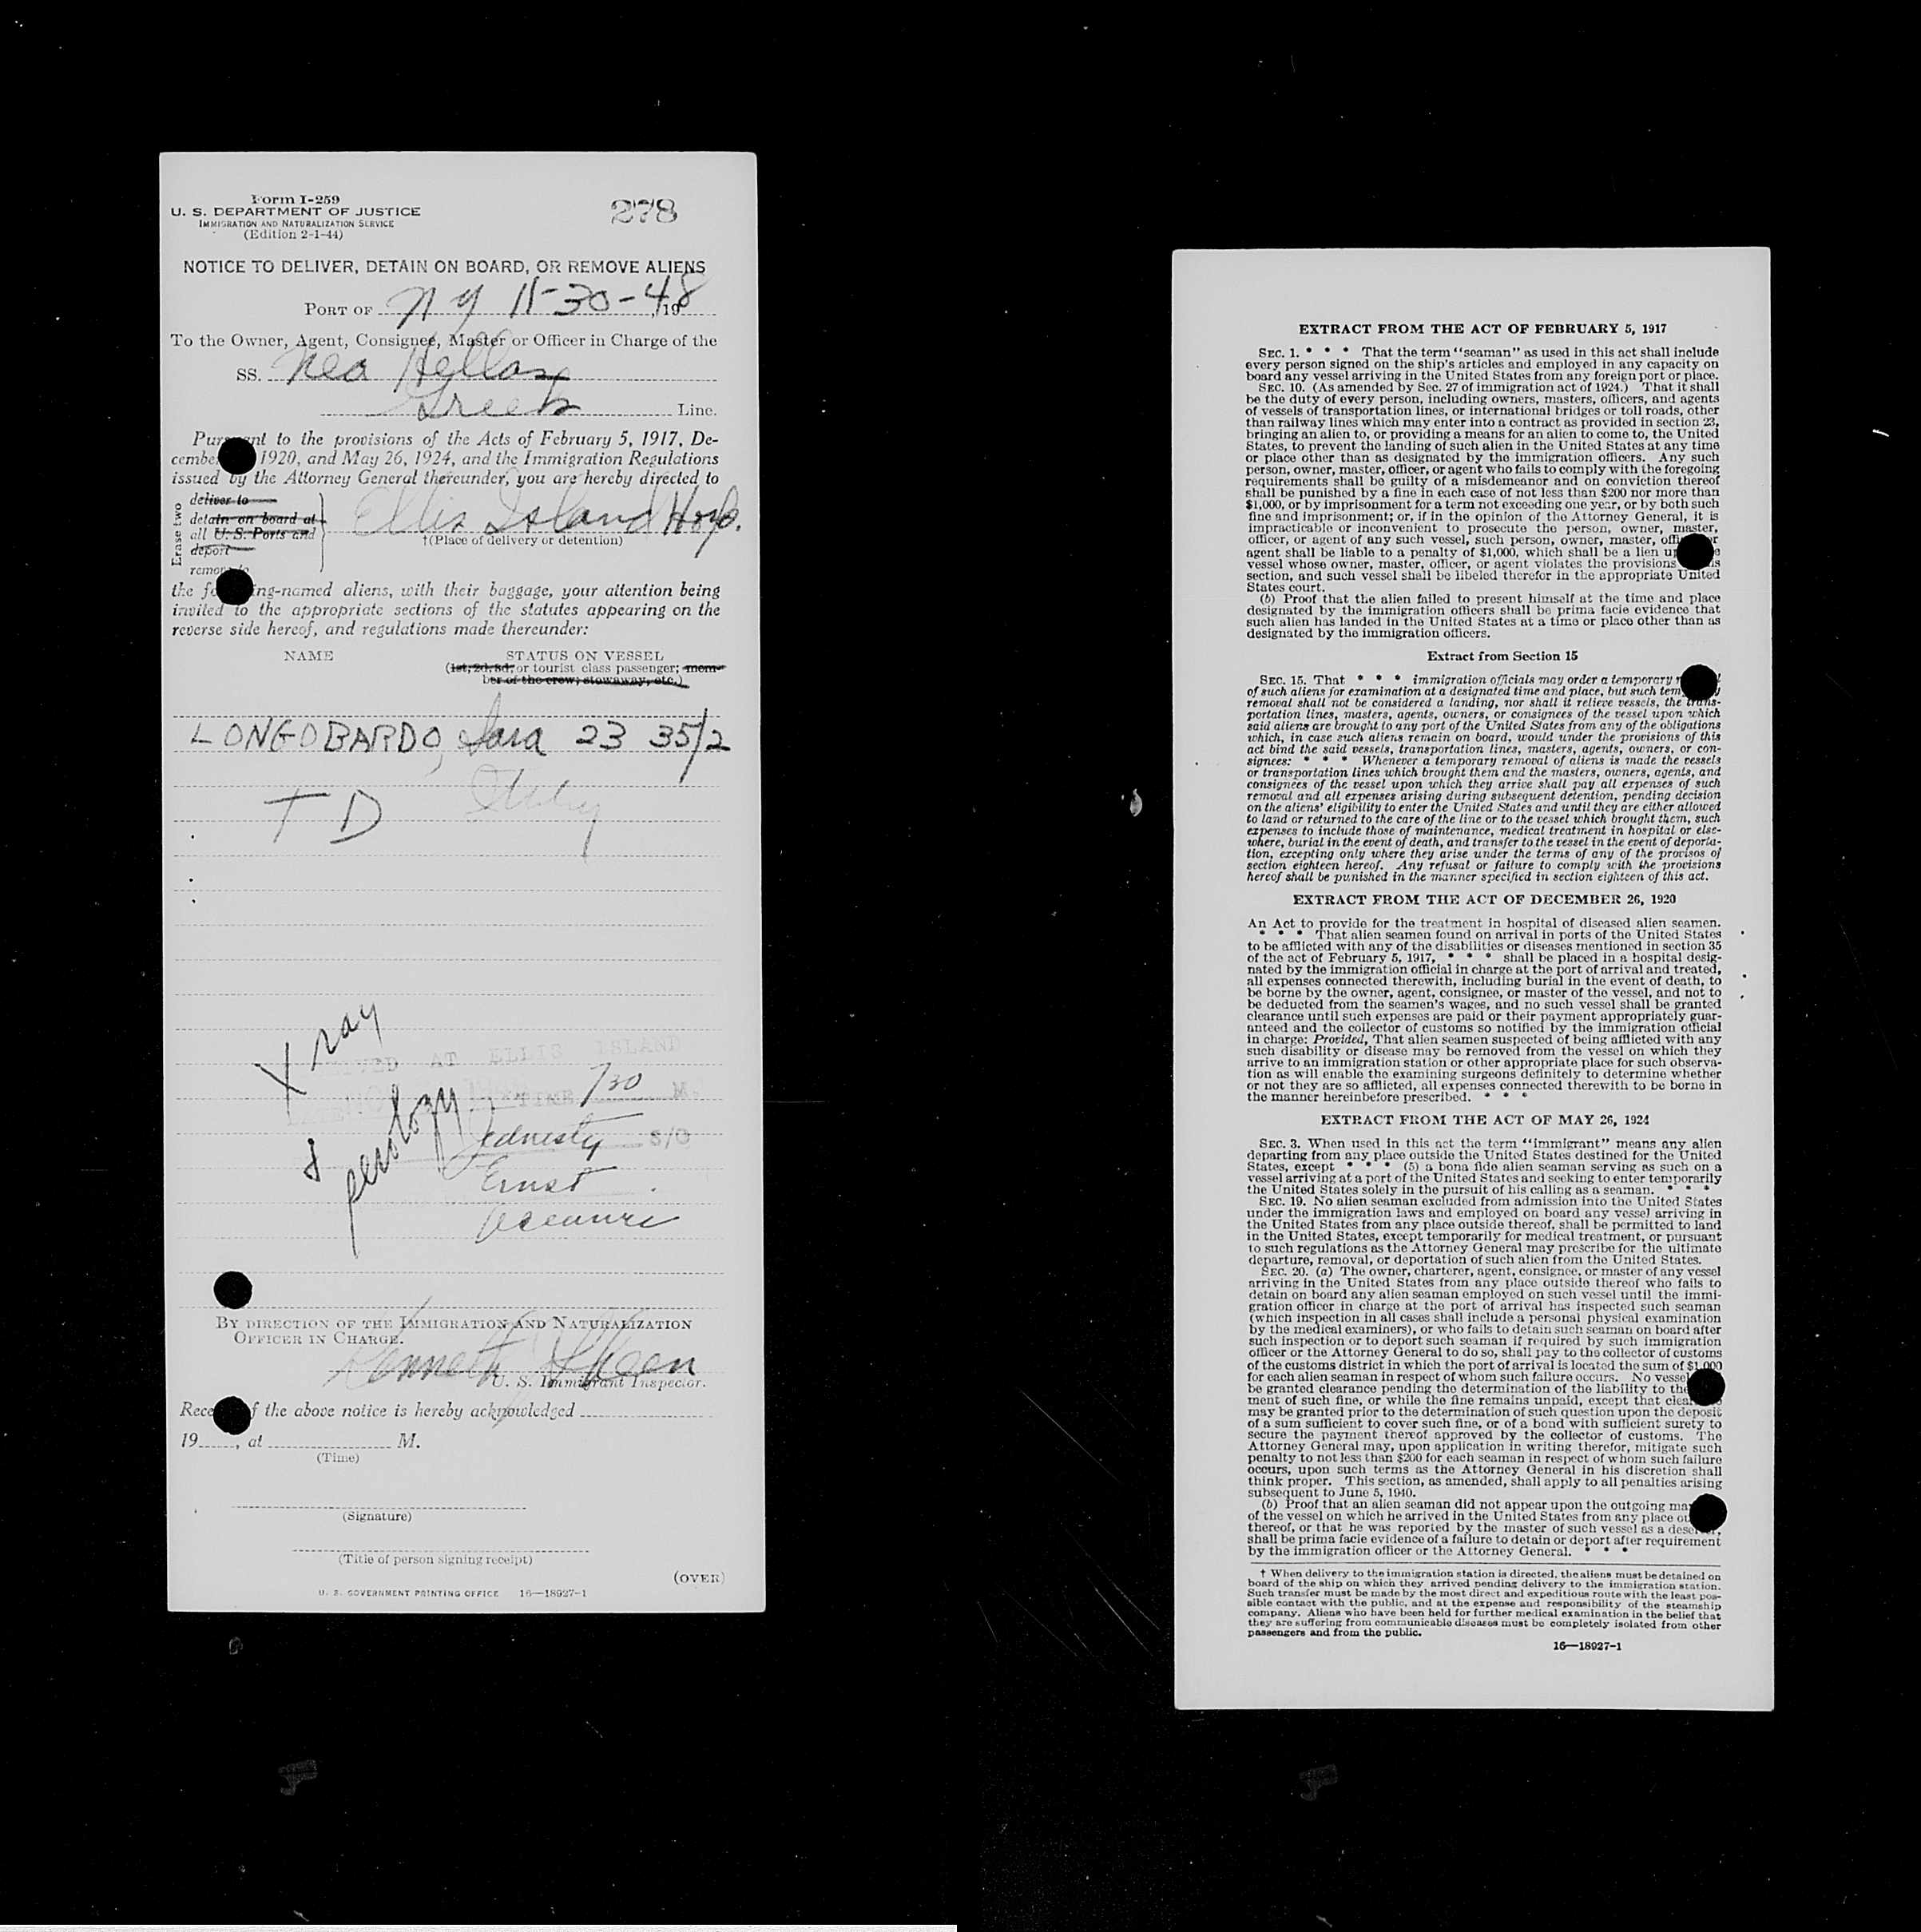 Form I-259
U. S. DEPARTMENT OF JUSTICE
IMMIGRATION AND NATURALIZATION SERVICE
(Edition 2-1-44)
278
NOTICE TO DELIVER, DETAIN ON BOARD, OR REMOVE ALIENS
PORT OF N Y 11-30-48, 19
To the Owner, Agent, Consignee, Master or Officer in Charge of the
SS. Nea Hellas
Greek Line.
Pursuant to the provisions of the Acts of February 5, 1917, De-
cember 1920, and May 26, 1924, and the Immigration Regulations
issued by the Attorney General thereunder, you are hereby directed to
Erase two
deliver to
detain on board at
all U. S. Ports and
deport
remove to
Ellis Island Hosp.
†(Place of delivery or detention)
the following-named aliens, with their baggage, your attention being
invited to the appropriate sections of the statutes appearing on the
reverse side hereof, and regulations made thereunder:
NAME STATUS ON VESSEL
(1st, 2d, 3d, or tourist class passenger; mem-
ber of the crew; stowaway, etc.)
LONGOBARDO, Sara 23 35/2
T D Italy
X ray
AT ELLIS ISLAND
TIME 730 M.
&
S/O
Ernst
BY DIRECTION OF THE IMMIGRATION AND NATURALIZATION
OFFICER IN CHARGE.
Kenneth
U. S. Immigrant Inspector.
Receipt of the above notice is hereby acknowledged
19, at M.
(Time)
(Signature)
(Title of person signing receipt)
(OVER)
U. S. GOVERNMENT PRINTING OFFICE 16—18927-1
EXTRACT FROM THE ACT OF FEBRUARY 5, 1917
SEC. 1. * * * That the term "seaman" as used in this act shall include
every person signed on the ship's articles and employed in any capacity on
board any vessel arriving in the United States from any foreign port or place.
SEC. 10. (As amended by Sec. 27 of immigration act of 1924.) That it shall
be the duty of every person, including owners, masters, officers, and agents
of vessels of transportation lines, or international bridges or toll roads, other
than railway lines which may enter into a contract as provided in section 23,
bringing an alien to, or providing a means for an alien to come to, the United
States, to prevent the landing of such alien in the United States at any time
or place other than as designated by the immigration officers. Any such
person, owner, master, officer, or agent who fails to comply with the foregoing
requirements shall be guilty of a misdemeanor and on conviction thereof
shall be punished by a fine in each case of not less than $200 nor more than
$1,000, or by imprisonment for a term not exceeding one year, or by both such
fine and imprisonment; or, if in the opinion of the Attorney General, it is
impracticable or inconvenient to prosecute the person, owner, master,
officer, or agent of any such vessel, such person, owner, master, officer or
agent shall be liable to a penalty of $1,000, which shall be a lien upon the
vessel whose owner, master, officer, or agent violates the provisions of this
section, and such vessel shall be libeled therefor in the appropriate United
States court.
(b) Proof that the alien failed to present himself at the time and place
designated by the immigration officers shall be prima facie evidence that
such alien has landed in the United States at a time or place other than as
designated by the immigration officers.
Extract from Section 15
SEC. 15. That * * * immigration officials may order a temporary removal
of such aliens for examination at a designated time and place, but such temporary
removal shall not be considered a landing, nor shall it relieve vessels, the trans-
portation lines, masters, agents, owners, or consignees of the vessel upon which
said aliens are brought to any port of the United States from any of the obligations
which, in case such aliens remain on board, would under the provisions of this
act bind the said vessels, transportation lines, masters, agents, owners, or con-
signees: * * * Whenever a temporary removal of aliens is made the vessels
or transportation lines which brought them and the masters, owners, agents, and
consignees of the vessel upon which they arrive shall pay all expenses of such
removal and all expenses arising during subsequent detention, pending decision
on the aliens' eligibility to enter the United States and until they are either allowed
to land or returned to the care of the line or to the vessel which brought them, such
expenses to include those of maintenance, medical treatment in hospital or else-
where, burial in the event of death, and transfer to the vessel in the event of deporta-
tion, excepting only where they arise under the terms of any of the provisos of
section eighteen hereof. Any refusal or failure to comply with the provisions
hereof shall be punished in the manner specified in section eighteen of this act.
EXTRACT FROM THE ACT OF DECEMBER 26, 1920
An Act to provide for the treatment in hospital of diseased alien seamen.
* * * That alien seamen found on arrival in ports of the United States
to be afflicted with any of the disabilities or diseases mentioned in section 35
of the act of February 5, 1917, * * * shall be placed in a hospital desig-
nated by the immigration official in charge at the port of arrival and treated,
all expenses connected therewith, including burial in the event of death, to
be borne by the owner, agent, consignee, or master of the vessel, and not to
be deducted from the seamen's wages, and no such vessel shall be granted
clearance until such expenses are paid or their payment appropriately guar-
anteed and the collector of customs so notified by the immigration official
in charge: Provided, That alien seamen suspected of being afflicted with any
such disability or disease may be removed from the vessel on which they
arrive to an immigration station or other appropriate place for such observa-
tion as will enable the examining surgeons definitely to determine whether
or not they are so afflicted, all expenses connected therewith to be borne in
the manner hereinbefore prescribed. * * *
EXTRACT FROM THE ACT OF MAY 26, 1924
SEC. 3. When used in this act the term "immigrant" means any alien
departing from any place outside the United States destined for the United
States, except * * * (5) a bona fide alien seaman serving as such on a
vessel arriving at a port of the United States and seeking to enter temporarily
the United States solely in the pursuit of his calling as a seaman. * * *
SEC. 19. No alien seaman excluded from admission into the United States
under the immigration laws and employed on board any vessel arriving in
the United States from any place outside thereof, shall be permitted to land
in the United States, except temporarily for medical treatment, or pursuant
to such regulations as the Attorney General may prescribe for the ultimate
departure, removal, or deportation of such alien from the United States.
SEC. 20. (a) The owner, charterer, agent, consignee, or master of any vessel
arriving in the United States from any place outside thereof who fails to
detain on board any alien seaman employed on such vessel until the immi-
gration officer in charge at the port of arrival has inspected such seaman
(which inspection in all cases shall include a personal physical examination
by the medical examiners), or who fails to detain such seaman on board after
such inspection or to deport such seaman if required by such immigration
officer or the Attorney General to do so, shall pay to the collector of customs
of the customs district in which the port of arrival is located the sum of $1,000
for each alien seaman in respect of whom such failure occurs. No vessel
be granted clearance pending the determination of the liability to the
ment of such fine, or while the fine remains unpaid, except that clearance
may be granted prior to the determination of such question upon the deposit
of a sum sufficient to cover such fine, or of a bond with sufficient surety to
secure the payment thereof approved by the collector of customs. The
Attorney General may, upon application in writing therefor, mitigate such
penalty to not less than $200 for each seaman in respect of whom such failure
occurs, upon such terms as the Attorney General in his discretion shall
think proper. This section, as amended, shall apply to all penalties arising
subsequent to June 5, 1940.
(b) Proof that an alien seaman did not appear upon the outgoing manifest
of the vessel on which he arrived in the United States from any place outside
thereof, or that he was reported by the master of such vessel as a deserter,
shall be prima facie evidence of a failure to detain or deport after requirement
by the immigration officer or the Attorney General. * * *
† When delivery to the immigration station is directed, the aliens must be detained on
board of the ship on which they arrived pending delivery to the immigration station.
Such transfer must be made by the most direct and expeditious route with the least pos-
sible contact with the public, and at the expense and responsibility of the steamship
company. Aliens who have been held for further medical examination in the belief that
they are suffering from communicable diseases must be completely isolated from other
passengers and from the public.
16—18927-1